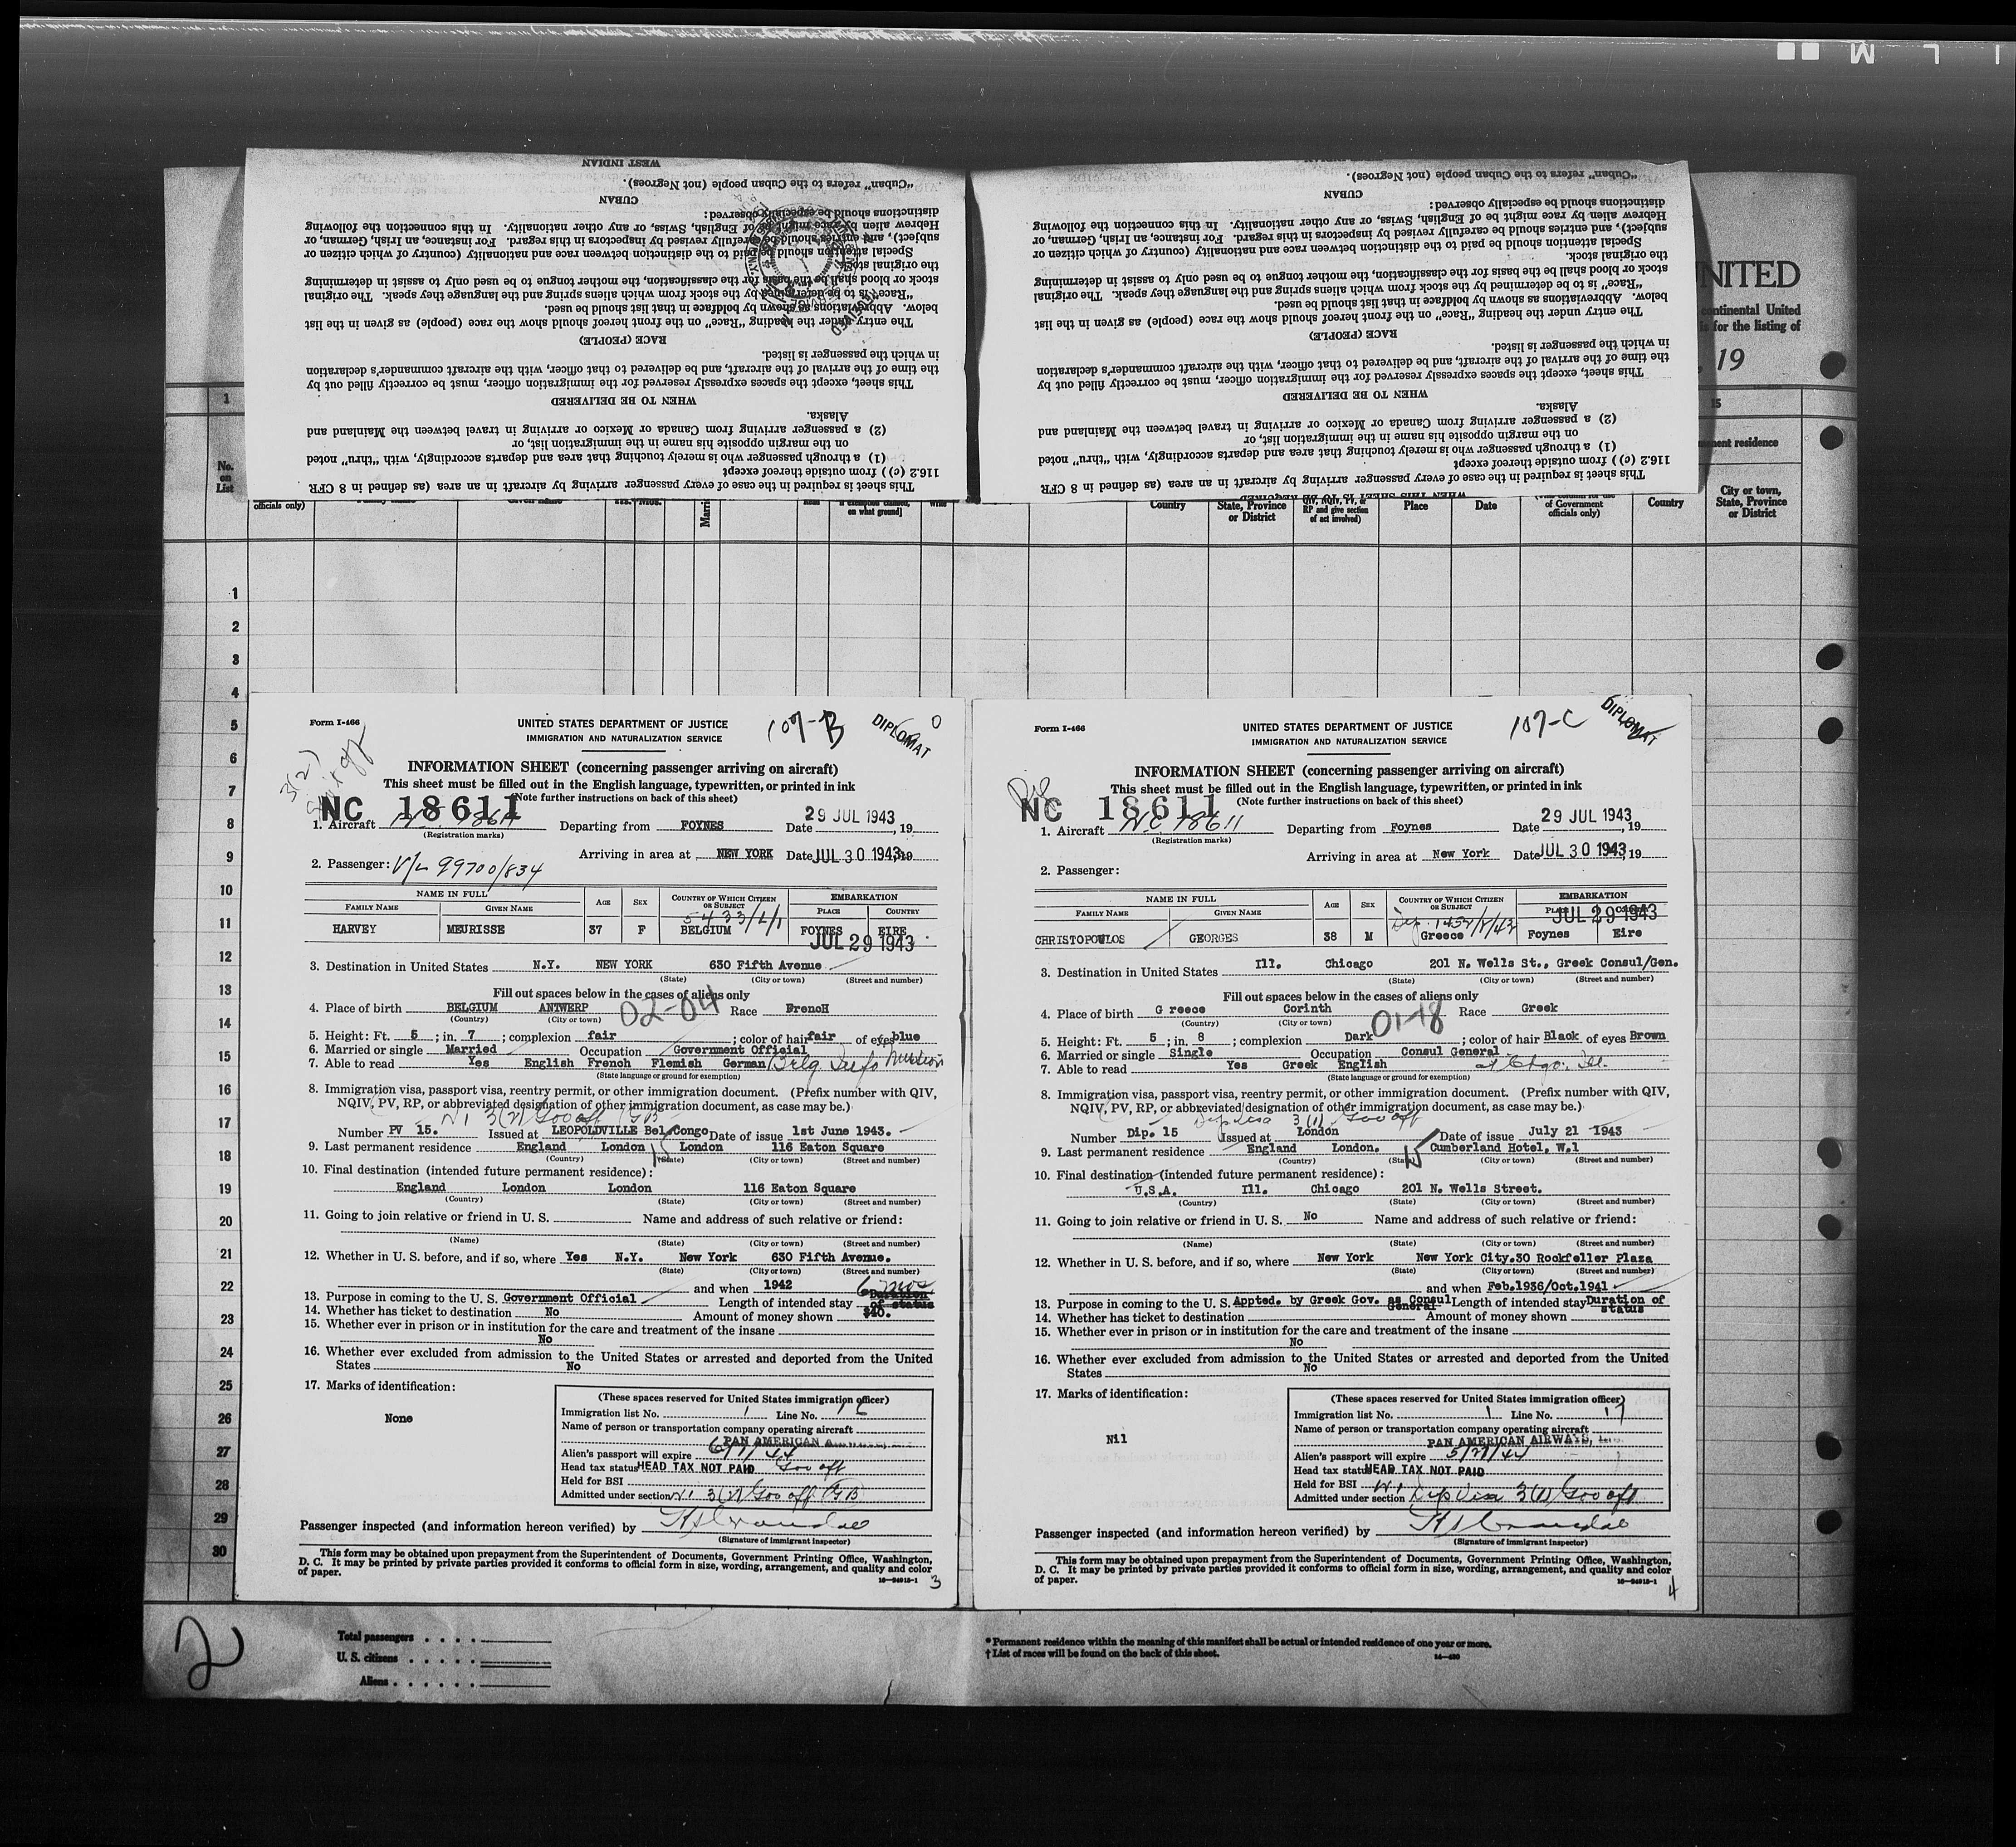 I L M
WEST INDIAN
"Cuban" refers to the Cuban people (not Negroes).
CUBAN
distinctions should be especially observed:
Hebrew alien by race might be of English, Swiss, or any other nationality. In this connection the following
subject), and entries should be carefully revised by inspectors in this regard. For instance, an Irish, German, or
Special attention should be paid to the distinction between race and nationality (country of which citizen or
the original stock.
stock or blood shall be the basis for the classification, the mother tongue to be used only to assist in determining
"Race" is to be determined by the stock from which aliens spring and the language they speak. The original
below. Abbreviations as shown by boldface in that list should be used.
The entry under the heading "Race" on the front hereof should show the race (people) as given in the list
RACE (PEOPLE)
in which the passenger is listed.
the time of the arrival of the aircraft, and be delivered to that officer, with the aircraft commander's declaration
This sheet, except the spaces expressly reserved for the immigration officer, must be correctly filled out by
WHEN TO BE DELIVERED
Alaska.
(2) a passenger arriving from Canada or Mexico or arriving in travel between the Mainland and
on the margin opposite his name in the immigration list, or
(1) a through passenger who is merely touching that area and departs accordingly, with "thru" noted
116.2 (c)) from outside thereof except
This sheet is required in the case of every passenger arriving by aircraft in an area (as defined in 8 CFR
"Cuban" refers to the Cuban people (not Negroes).
CUBAN
distinctions should be especially observed:
Hebrew alien by race might be of English, Swiss, or any other nationality. In this connection the following
subject), and entries should be carefully revised by inspectors in this regard. For instance, an Irish, German, or
Special attention should be paid to the distinction between race and nationality (country of which citizen or
the original stock.
stock or blood shall be the basis for the classification, the mother tongue to be used only to assist in determining
"Race" is to be determined by the stock from which aliens spring and the language they speak. The original
below. Abbreviations as shown by boldface in that list should be used.
The entry under the heading "Race" on the front hereof should show the race (people) as given in the list
RACE (PEOPLE)
in which the passenger is listed.
the time of the arrival of the aircraft, and be delivered to that officer, with the aircraft commander's declaration
This sheet, except the spaces expressly reserved for the immigration officer, must be correctly filled out by
WHEN TO BE DELIVERED
Alaska.
(2) a passenger arriving from Canada or Mexico or arriving in travel between the Mainland and
on the margin opposite his name in the immigration list, or
(1) a through passenger who is merely touching that area and departs accordingly, with "thru" noted
116.2 (c)) from outside thereof except
This sheet is required in the case of every passenger arriving by aircraft in an area (as defined in 8 CFR
WHEN THIS SHEET IS TO BE REQUIRED
NITED
continental United
is for the listing of
, 19
1
15
residence
No. on List
officials only)
on what ground]
Country
State, Province or District
RP and give section of act involved)
Place
Date
of Government officials only)
Country
City or town, State, Province or District
1
2
3
4
5
6
7
8
9
10
11
12
13
14
15
16
17
18
19
20
21
22
23
24
25
26
27
28
29
30
Form I-466
UNITED STATES DEPARTMENT OF JUSTICE
IMMIGRATION AND NATURALIZATION SERVICE
107-B
DIPLOMAT
0
3(2)
INFORMATION SHEET (concerning passenger arriving on aircraft)
This sheet must be filled out in the English language, typewritten, or printed in ink
(Note further instructions on back of this sheet)
NC 18611
1. Aircraft Departing from FOYNES Date 29 JUL 1943, 19
(Registration marks)
Arriving in area at NEW YORK Date JUL 30 1943, 19
2. Passenger: V/L 99700/834
NAME IN FULL AGE SEX COUNTRY OF WHICH CITIZEN OR SUBJECT EMBARKATION
FAMILY NAME GIVEN NAME PLACE COUNTRY
5433/L/1
HARVEY MEURISSE 37 F BELGIUM FOYNES EIRE
JUL 29 1943
3. Destination in United States N.Y. NEW YORK 630 Fifth Avenue
(State) (City or town) (Street and number)
Fill out spaces below in the cases of aliens only
4. Place of birth BELGIUM ANTWERP 02-04 Race FrencH
(Country) (City or town)
5. Height: Ft. 5; in. 7; complexion fair; color of hair fair of eyes blue
6. Married or single Married Occupation Government Official
7. Able to read Yes English French Flemish German Belg. Info Mission
(State language or ground for exemption)
8. Immigration visa, passport visa, reentry permit, or other immigration document. (Prefix number with QIV,
NQIV, PV, RP, or abbreviated designation of other immigration document, as case may be.)
3(2) Gov off GB
Number PV 15. Issued at LEOPOLDVILLE Bel Congo Date of issue 1st June 1943.
9. Last permanent residence England London London 116 Eaton Square
(Country) (State) (City or town) (Street and number)
10. Final destination (intended future permanent residence):
England London London 116 Eaton Square
(Country) (State) (City or town) (Street and number)
11. Going to join relative or friend in U. S. Name and address of such relative or friend:
(Name) (State) (City or town) (Street and number)
12. Whether in U. S. before, and if so, where Yes N.Y. New York 630 Fifth Avenue.
(State) (City or town) (Street and number)
and when 1942 6 mos
13. Purpose in coming to the U. S. Government Official Length of intended stay Duration of status
14. Whether has ticket to destination No Amount of money shown $40.
15. Whether ever in prison or in institution for the care and treatment of the insane
No
16. Whether ever excluded from admission to the United States or arrested and deported from the United
States No
17. Marks of identification:
None
(These spaces reserved for United States immigration officer)
Immigration list No. 1 Line No. 16
Name of person or transportation company operating aircraft
PAN AMERICAN
Alien's passport will expire 6/1/44
Head tax status HEAD TAX NOT PAID Gov off
Held for BSI
Admitted under section 3(2) Gov off GB
Passenger inspected (and information hereon verified) by
(Signature of immigrant inspector)
This form may be obtained upon prepayment from the Superintendent of Documents, Government Printing Office, Washington,
D. C. It may be printed by private parties provided it conforms to official form in size, wording, arrangement, and quality and color
of paper.
16—24915-1
3
Form I-466
UNITED STATES DEPARTMENT OF JUSTICE
IMMIGRATION AND NATURALIZATION SERVICE
107-C
DIPLOMAT
Dip
INFORMATION SHEET (concerning passenger arriving on aircraft)
This sheet must be filled out in the English language, typewritten, or printed in ink
(Note further instructions on back of this sheet)
NC 18611
1. Aircraft NC 18611 Departing from Foynes Date 29 JUL 1943, 19
(Registration marks)
Arriving in area at New York Date JUL 30 1943, 19
2. Passenger:
NAME IN FULL AGE SEX COUNTRY OF WHICH CITIZEN OR SUBJECT EMBARKATION
FAMILY NAME GIVEN NAME PLACE COUNTRY
JUL 29 1943
CHRISTOPOULOS GEORGES 38 M Greece Foynes Eire
3. Destination in United States Ill. Chicago 201 N. Wells St., Greek Consul/Gen.
(State) (City or town) (Street and number)
Fill out spaces below in the cases of aliens only
4. Place of birth G reece Corinth 01-18 Race Greek
(Country) (City or town)
5. Height: Ft. 5; in. 8; complexion Dark; color of hair Black of eyes Brown
6. Married or single Single Occupation Consul General
7. Able to read Yes Greek English at Chgo. Ill.
(State language or ground for exemption)
8. Immigration visa, passport visa, reentry permit, or other immigration document. (Prefix number with QIV,
NQIV, PV, RP, or abbreviated designation of other immigration document, as case may be.)
Dip visa 3(1) Gov off
Number Dip. 15 Issued at London Date of issue July 21 1943
9. Last permanent residence England London. Cumberland Hotel, W.1
(Country) (State) (City or town) (Street and number)
10. Final destination (intended future permanent residence):
U.S.A. Ill. Chicago 201 N. Wells Street.
(Country) (State) (City or town) (Street and number)
11. Going to join relative or friend in U. S. No Name and address of such relative or friend:
(Name) (State) (City or town) (Street and number)
12. Whether in U. S. before, and if so, where New York New York City.30 Rockfeller Plaza
(State) (City or town) (Street and number)
and when Feb.1936/Oct.1941
13. Purpose in coming to the U. S. Appted. by Greek Gov. as Consul General Length of intended stay Duration of status
14. Whether has ticket to destination Amount of money shown
15. Whether ever in prison or in institution for the care and treatment of the insane
No
16. Whether ever excluded from admission to the United States or arrested and deported from the United
States No
17. Marks of identification:
Nil
(These spaces reserved for United States immigration officer)
Immigration list No. 1 Line No. 17
Name of person or transportation company operating aircraft
PAN AMERICAN AIRWAYS,
Alien's passport will expire 5/21/44
Head tax status HEAD TAX NOT PAID
Held for BSI
Admitted under section Dip Visa 3(1) Gov off
Passenger inspected (and information hereon verified) by
(Signature of immigrant inspector)
This form may be obtained upon prepayment from the Superintendent of Documents, Government Printing Office, Washington,
D. C. It may be printed by private parties provided it conforms to official form in size, wording, arrangement, and quality and color
of paper.
16—24915-1
4
2
Total passengers
U. S. citizens
Aliens
* Permanent residence within the meaning of this manifest shall be actual or intended residence of one year or more.
† List of races will be found on the back of this sheet.